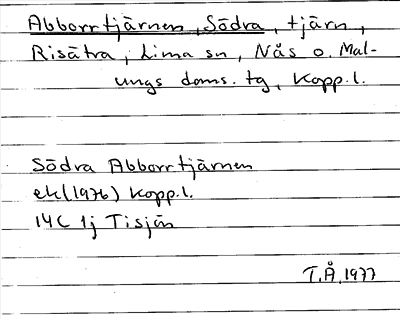 Abborrtjärnen, Södra, tjärn,
Risätra, Lima sn, Nås o. Mal-
ungs doms. tg, Kopp.l.
Södra Abborrtjärnen
ek(1976) Kopp.l.
14C 1j Tisjön
T.Å.1977